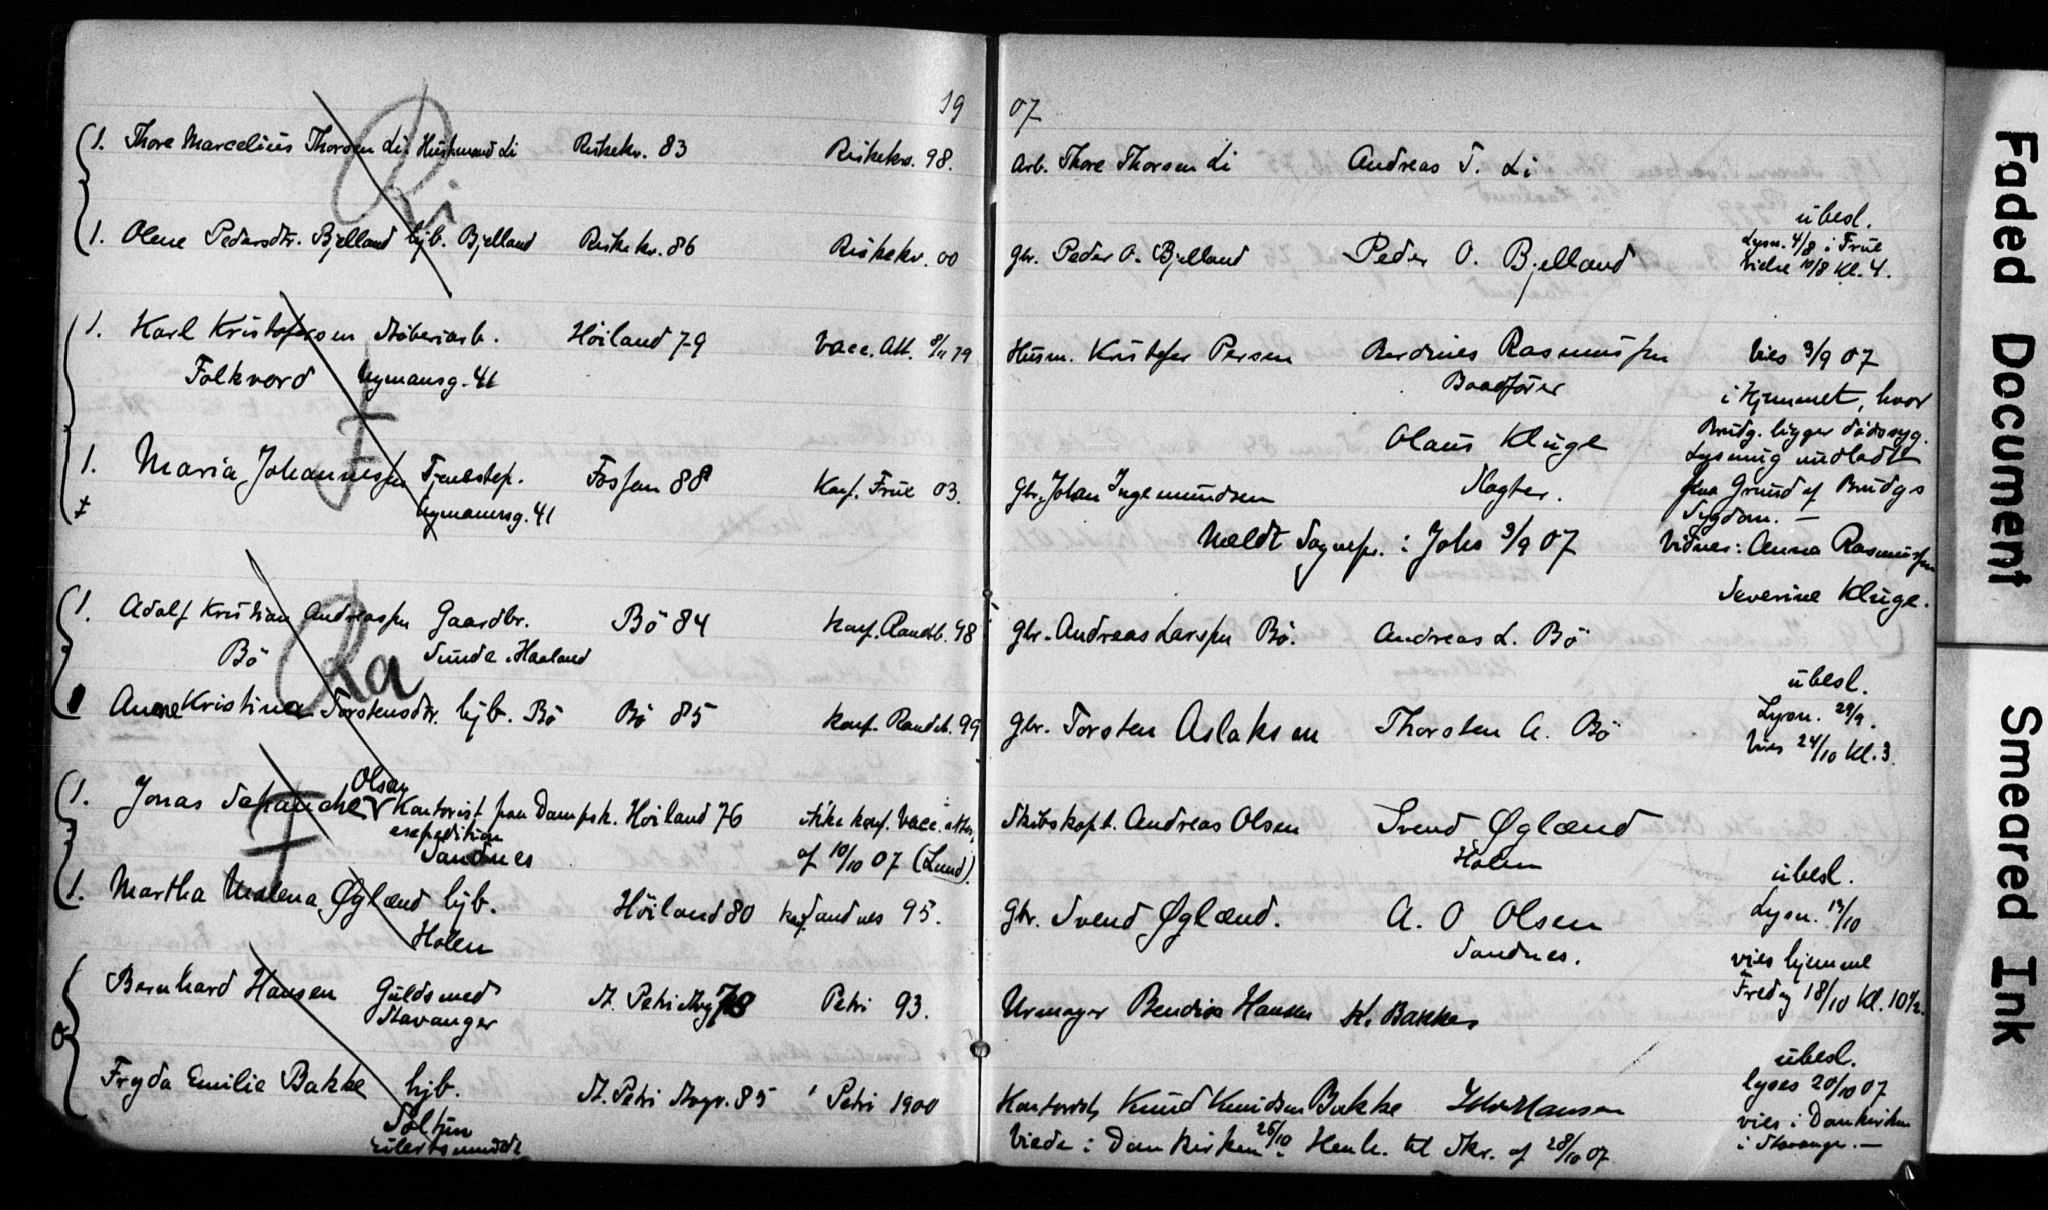 19 07
1. Thore Marcelius Thorsen Li Husmand Li Riskekv. 83 Riskekv. 98. Arb. Thore Thorsen Li Andreas T. Li
Ri
1. Olene Pedersdtr. Bjelland hjb. Bjelland Riskekv. 86 Riskekv. 00 gbr. Peder O. Bjelland Peder O. Bjelland
ubesl.
Lysn. 4/8 i Frue
Vielse 10/8 Kl. 4.
1. Karl Kristofersen Støberiarb. Höiland 79 Vacc. Att. 8/11 79 Husm. Kristofer Persen Berdines Rasmussen Vies 3/9 07
Folkvord Nymansg. 41 Baadfører i Hjemmet, hvor
F
Olaus Kluge Brudg. ligger dødssyg.
Lysning undladt
1. Maria Johannessen Tjenestep. Fossan 88 Konf. Frue 03. Gbr. Johan Ingemundsen Slagter. paa Grund af Brudgs
Nymannsg. 41 Sygdom. —
Meldt Sognepr. i Johs 3/9 07 Vidnes: Anna Rasmussen
Severine Kluge.
1. Adolf Kristian Andreassen Gaardbr. Bö 84 Konf. Randb. 98 gbr. Andreas Larssen Bö. Andreas L. Bö
Bö Sunde i Haaland
Ra
ubesl.
Anne Kristine Torstensdtr. hjb. Bö Bö 85 Konf. Randb. 99 Gbr. Torsten Aslaksen Thorsten A. Bö Lysn. 29/9.
Vies 24/10 Kl. 3
Olsen
1. Jonas Schanche Kontorist paa Dampsk. Höiland 76 ikke konf. Vacc. attest Skibskapt. Andreas Olsen Svend Øglænd
expedition
Sandnes af 10/10 07 (Lund). Holen
F
ubesl.
1. Martha Malena Øglænd hjb. Höiland 80 Konf. Sandnes 95. Gbr. Svend Øglænd. A. O Olsen Lysn. 13/10
Holen Sandnes. vies hjemme
Fredag 18/10 Kl. 10½.
Bernhard Hansen Guldsmed St. Petri Stvg 78 Petri 93. Urmager Bendix Hansen K. Bakke
Stavanger
ubesl.
Fryda Emilie Bakke hjb. St. Petri Stvgr. 85 Petri 1900 Kontorist Knud Knudsen Bakke Hansen lyses 20/10 07
Soltun vies i Domkirken
Viede i Domkirken 26/10. Henh. til Skr. af 28/10 07 i Stavanger. —
Faded Document
Smeared Ink